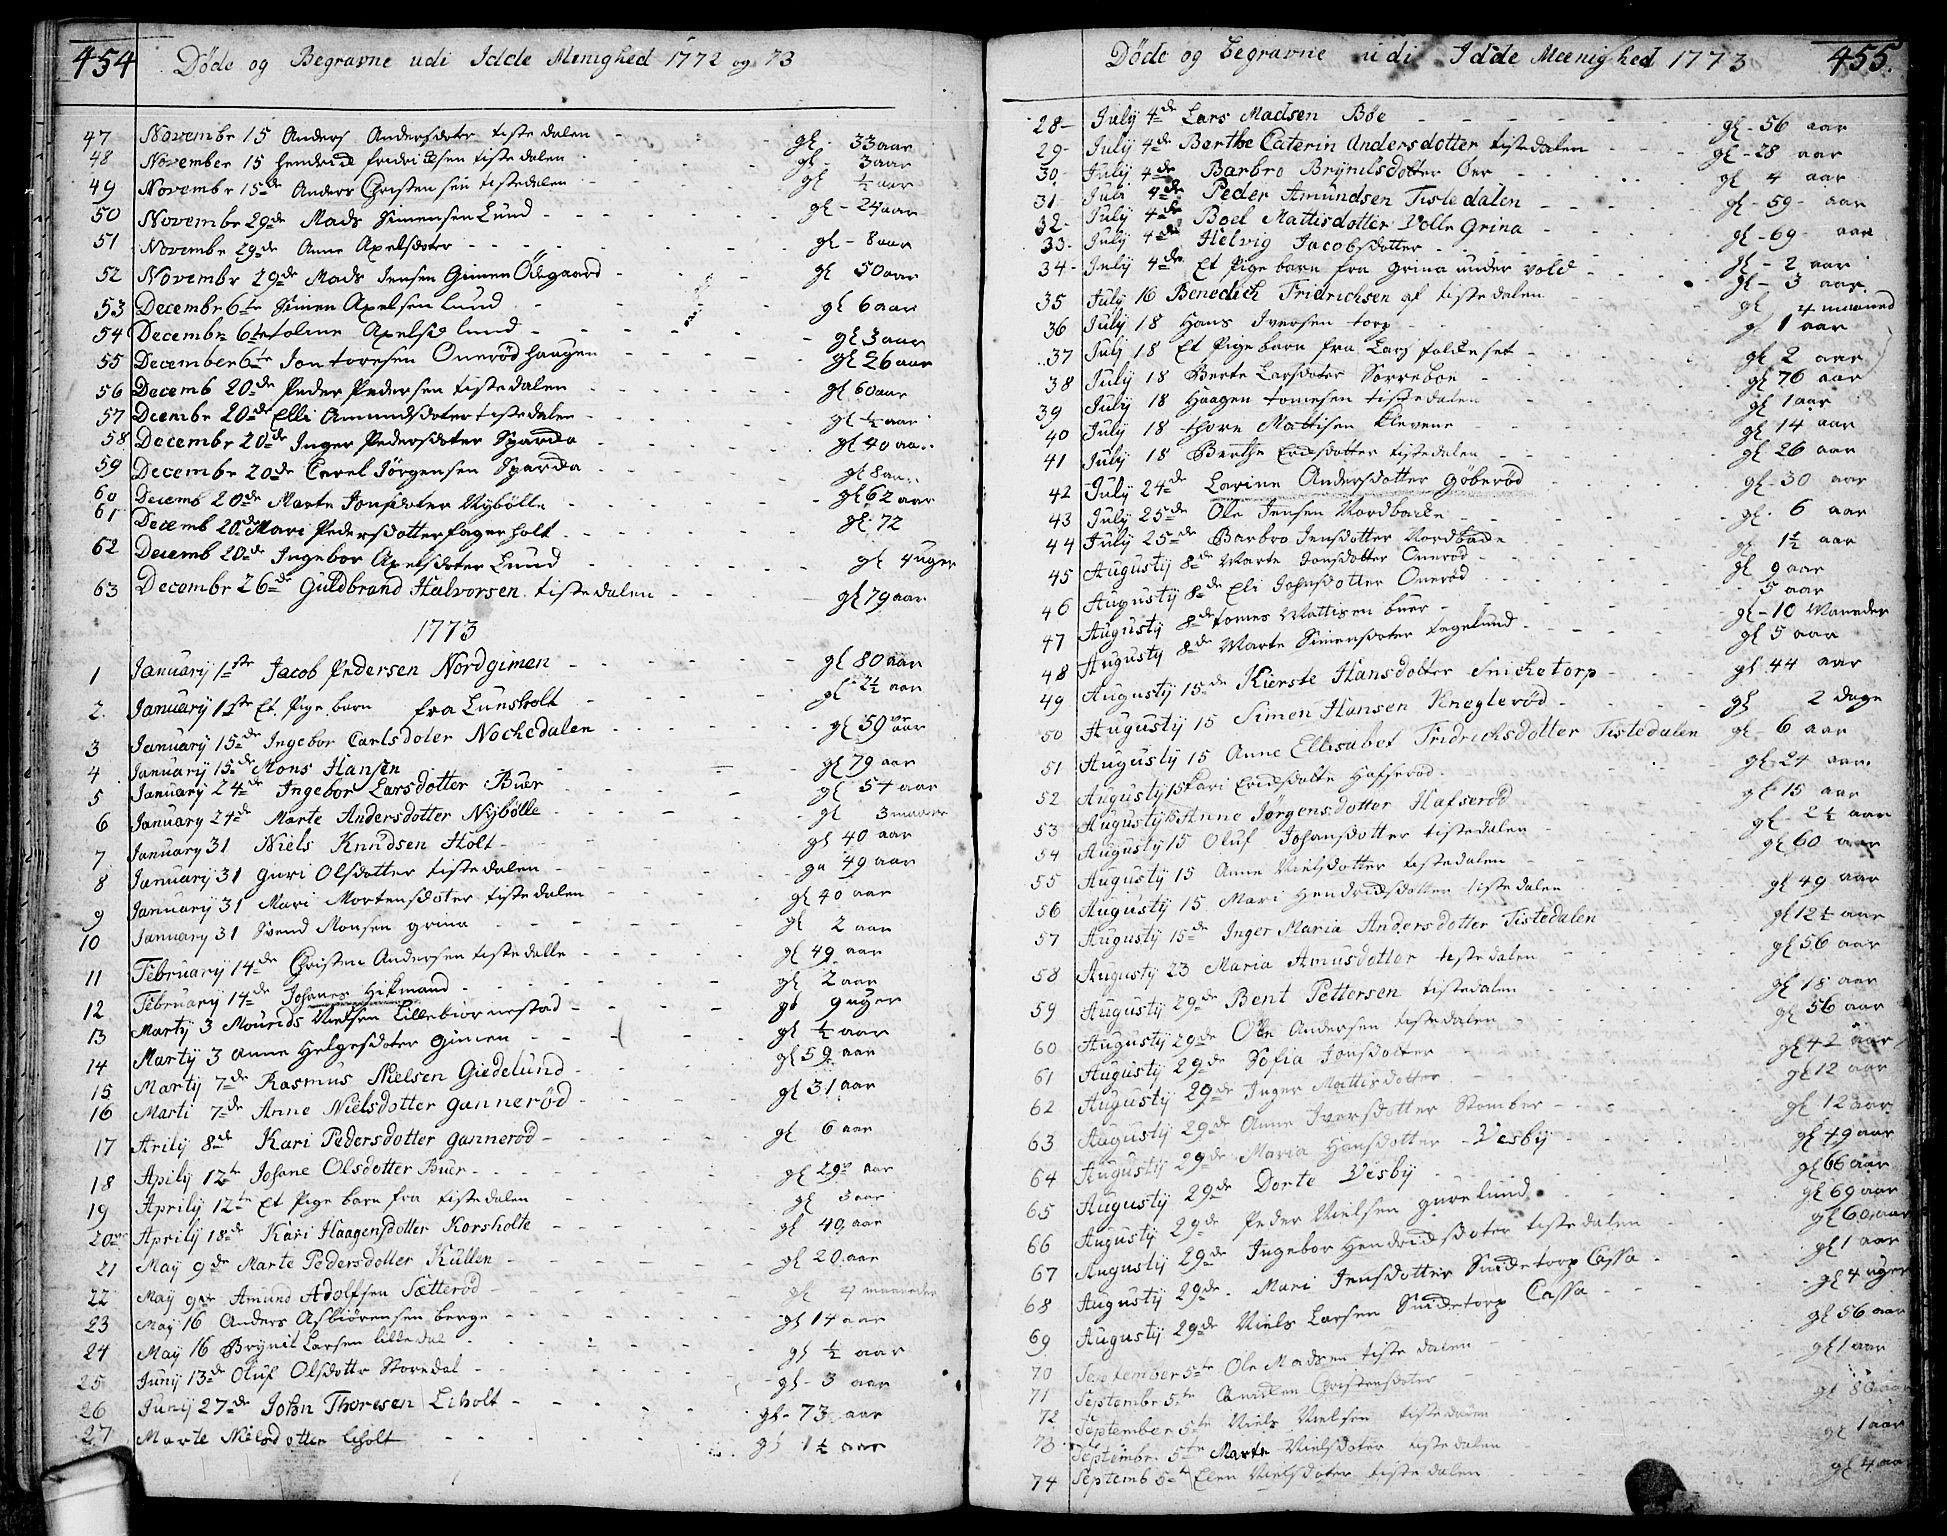 454
Døde og Begravne udi Idde Menighed 1772 og 73
47 Novembr 15 Anders Andersdoter tistedalen gl. 33 aar
48 November 15 Hendrick fridricksen tistedalen gl. 3 aar
49 Novembr 15de Anders Christensen tistedalen gl ½ aar
50 Novembr 29de Mads Simensen Lund gl - 24 aar
51 Novembr 29de Anne Axelsdoter gl - 8 aar
52 Novembr 29de Mads Jensen Gimen Ødegaard gl 50 aar
53 Decembr 6te Simen Axelsen lund gl 6 aar
54 Decembr 6te Axelsd lund gl 3 aar
55 December 6te Jon toresen Onerød haugen gl 26 aar
56 Decemb 20de Peder Pedersen tistedalen gl 60 aar
57 Decembr 20de Elli Amundsdoter tistedalen gl ½ aar
58 Decembr 20de Inger Pedersdoter Sparda gl 40 aar
59 Decembr 20de Carel Jørgensen Sparda gl 8 aar
60 Decemb 20de Marte Jonsdoter Nybølle gl 62 aar
61 Decemb 20de Mari Pedersdotter fagerholt gl. 72
62 Decemb 20de Ingebor Axelsdoter Lund gl 4 uger
63 Decembr 26de Guldbrand Halvorsen tistedalen gl 79 aar
1773
1 January 1ste Jacob Pedersen Nordgimen gl 80 aar
2. January 1ste Et Pige barn fra Lunsholt gl 2½ aar
3 January 15de Ingebor Carlsdoter Nochedalen gl 59 aar
4 January 15de Mons Hansen gl 79 aar
5 January 24de Ingebor Larsdotter Buer gl 54 aar
6 January 24de Marte Andersdotter Nybølle gl 3 maaner
7 January 31 Niels Knudsen Holt gl 40 aar
8 January 31 Guri Olsdotter tistedalen ga 49 aar
9 January 31 Mari Mortensdoter tistedalen gl 40 aar
10 January 31 Svend Monsen grina gl 2 aar
11 February 14de Christen Andersen tistedalle gl 49 aar
12 February 14de Johanes Hikmand gl 2 aar
13 Martij 3 Mourids Nielsen Lillebiørnestad gl 9 uger
14 Martij 3 Anne Helgesdoter Gimen gl ½ aar
15 Martij 7de Rasmus Nielsen Giedelund gl 59 aar
16 Marti 7de Anne Nielsdotter gannerød gl 31 aar
17 Arilij 8de Kari Pedersdotter gannerød gl 6 aar
18 Aprilij 12te Johane Olsdotter Buer gl 29 aar
19 Aprilij 12te Et Pige barn fra tistedalen gl 3 aar
20 Aprilij 18de Kari Haagensdotter Korsholte gl 40 aar
21 Maij 9de Marte Pedersdotter Kullen gl 20 aar
22 Maij 9de Amund Adolfsen Sætterød gl 4 maaneder
23 Maij 16 Anders Asbiørensen berge gl 14 aar
24 Maij 16 Brynil Larsen lilledal gl ½ aar
25 Junij 13de Oluf Olsdottr Storedal gl - 3 aar
26 Junij 27de John Thoresen Liholt gl - 73 aar
27 Marte Nielsdotter liholt gl 1½ aar
Døde og Begravne udi Idde Meenighed 1773
455.
28 - July 4de Lars Madsen Bøe gl - 56 aar
29 - July 4de Berthe Caterin Andersdotter tistedalen gl - 28 aar
30 - July 4de Barbro Brynilsdotter Øer gl 4 aar
31 July 4de Peder Amundsen Tistedalen gl - 59 - aar
32 - July 4de Boel Mattisdotter Volle Grina gl - 69 - aar
33 - July 4de Helvig Jacobsdotter gl - 2 aar
34 - July 4de Et Pige barn fra Grina under vold gl - 3 aar
35 July 16 Benedich Fridrichsen af tistedalen gl 4 maaned
36 July 18 Hans Iversen torp gl 1 aar
37 July 18 Et Pige barn fra Lars folkeset gl 2 aar
38 July 18 Berte Larsdoter Sørreboe gl 76 aar
39 July 18 Haagen tomesen tistedalen gl 1 aar
40 July 18 thore Mattisen Klevene gl 14 aar
41 July 18 Berthe Ericksdotter tistedalen gl 26 aar
42 July 24de Larine Andersdotter Gøberød gl - 30 aar
43 July 25de Ole Jensen Nordbacke gl. 6 aar
44 July 25de Barbro Jensdotter Nordbacke gl 1½ aar
45 Augustij 8de Marte Jonsdotter Onerød gl 9 aar
46 Augustij 8de Eli Johnsdotter Onerød 5 aar
47 Augustij 8de tomes Mattisen buer gl - 10 Maaneder
48 Augustij 8de Marte Simensdoter tegelund gl 5 aar
49 Augustij 15de Kierste Hansdotter Snicketorp gl 44 aar
50 Augustij 15 Simen Hansen Kneglerød gl 2 dage
51 Augustij 15 Anne Ellisabet Fridrichsdotter Tistedalen gl - 6 aar
52 Augustij 15 Kari Ericksdotte Hafserød gl 24 aar.
53 Augustij 15 Anne Jørgensdotter Hafserød gl 15 aar
54 Augustij 15 Oluf Johansdotter tistedalen gl - 2½ aar
55 Augustij 15 Anne Nielsdotter tistedalen gl 60 aar
56 Augustij 15 Mari Hendricksdotter tistedalen gl 49 aar
57 Augustij 15de Inger Maria Andersdotter Tistedalen gl 12½ aar
58 Augustij 23 Maria Amusdotter tistedalen gl 56 aar
59 Augustij 29de Bent Pettersen tistedalen gl 18 aar
60 Augustij 29de Ole Andersen tistedalen gl 56 aar
61 Augustij 29de Sofia Jonsdotter gl 42 aar
62 Augustij 29de Inger Mattisdotter gl 12 aar
63 Augustij 29de Anne Iversdotter Stomber gl 12 aar
64 Augustij 29de Maria Hansdotter Vesby gl 49 aar
65 Augustij 29de Dorte Vesby gl 66 aar
66 Augustij 29de Peder Nielsen gurelund gl 69 aar
67 Augustij 29de Ingebor Hendricksdoter tistedalen gl 60 aar
68 Augustij 29de. Mari Jensdotter Snicketorp Cassa gl 1 aar
69 Augustij 29de Niels Larsen Snicketorp Cassa gl 4 uger
70 September 5te Ole Madsen tistedalen gl 56 aar
71 September 5te Christensdoter gl 1 aar
72 September 5te Niels Nielsen tistedalen gl 80 aar
73 Septembr. 5te Marte Nielsdoter tistedalen gl 1 aar
74 Septemb 5te Elen Nielsdoter tistedalen gl 4 aar